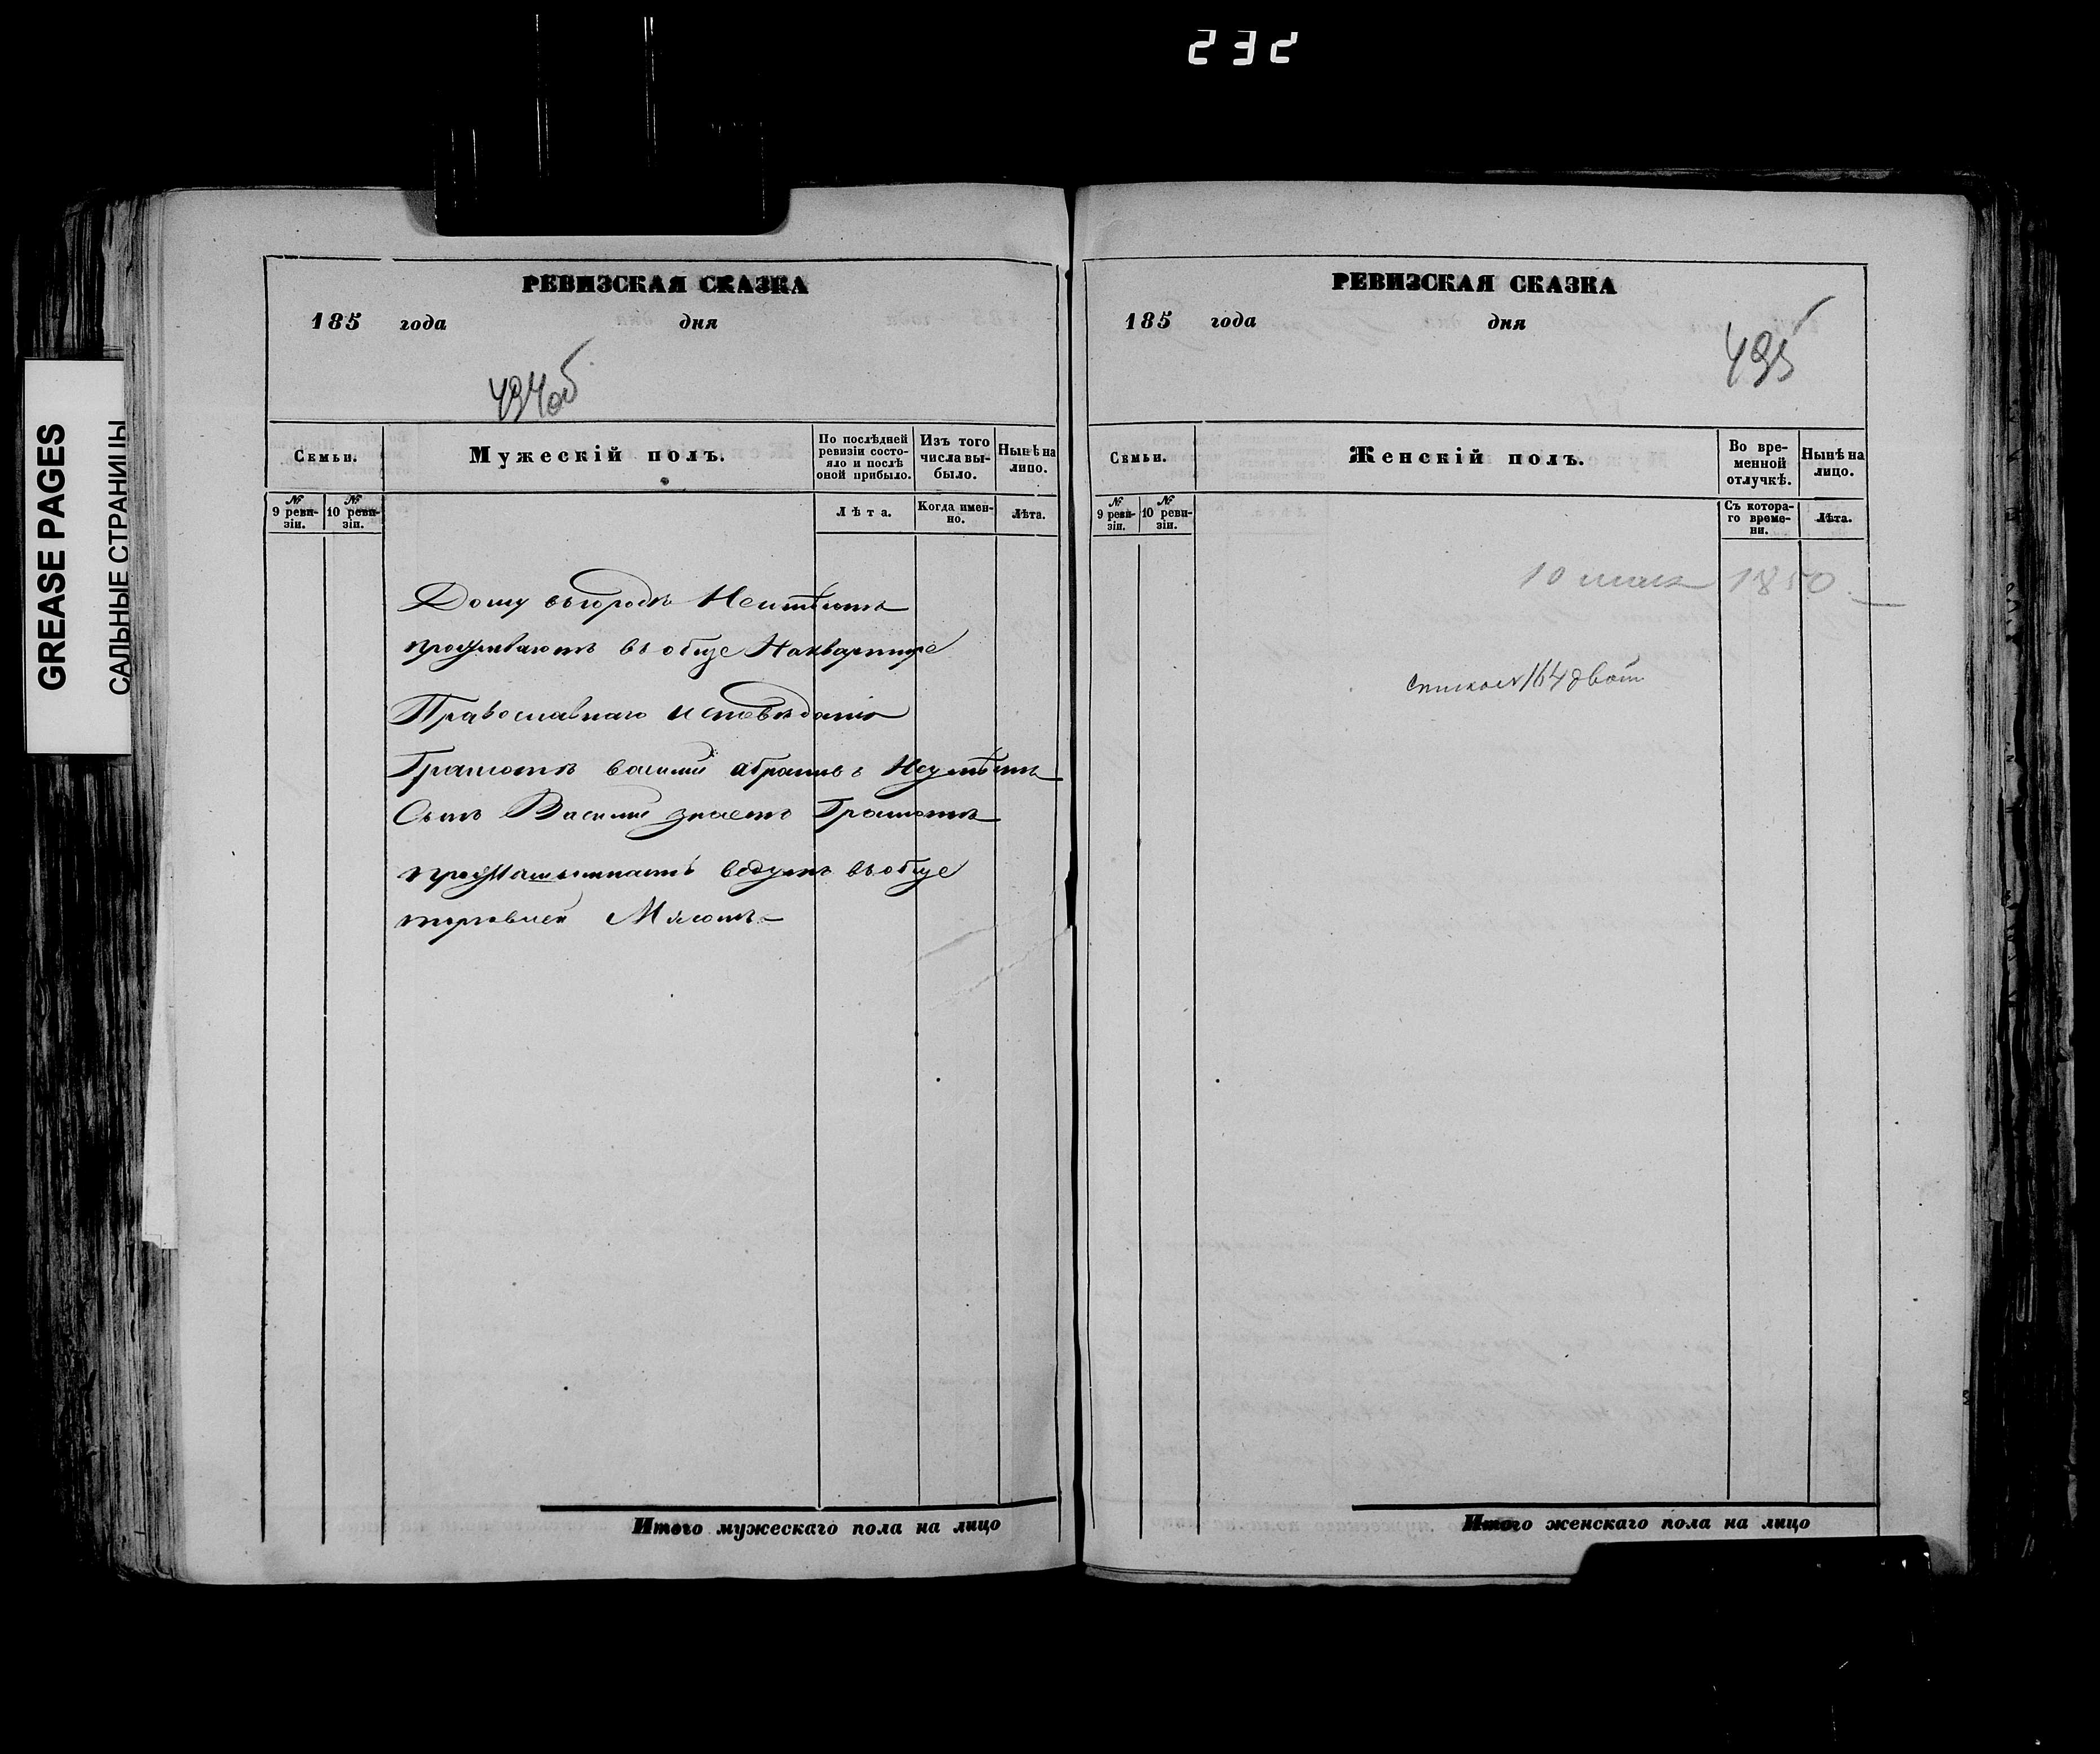 232
GREASE PAGES
САЛЬНЫЕ СТРАНИЦЫ
РЕВИЗСКАЯ СКАЗКА
185 года дня
494об
Семьи.
Мужескій полъ.
По послѣдней ревизіи состояло и послѣ оной прибыло.
Изъ того числа выбыло.
Нынѣ на лицо.
№ 9 ревизіи.
№ 10 ревизіи.
Лѣта.
Когда именно.
Лѣта.
Дому въ городѣ Неимѣютъ
проживаютъ въ обще Наквартире
Православнаго исповѣданія
Грамотѣ василий абрамовъ Неумѣетъ
Сынъ Василий знаетъ Грамотѣ
ведутъ въ обще
торговлей Мясомъ
Итого мужескаго пола на лицо
РЕВИЗСКАЯ СКАЗКА
185 года дня
495
Семьи.
Женскій полъ.
Во временной отлучкѣ.
Нынѣ на лицо.
№ 9 ревизіи.
№ 10 ревизіи.
Съ котораго времени.
Лѣта.
10 1850
164
Итого женскаго пола на лицо